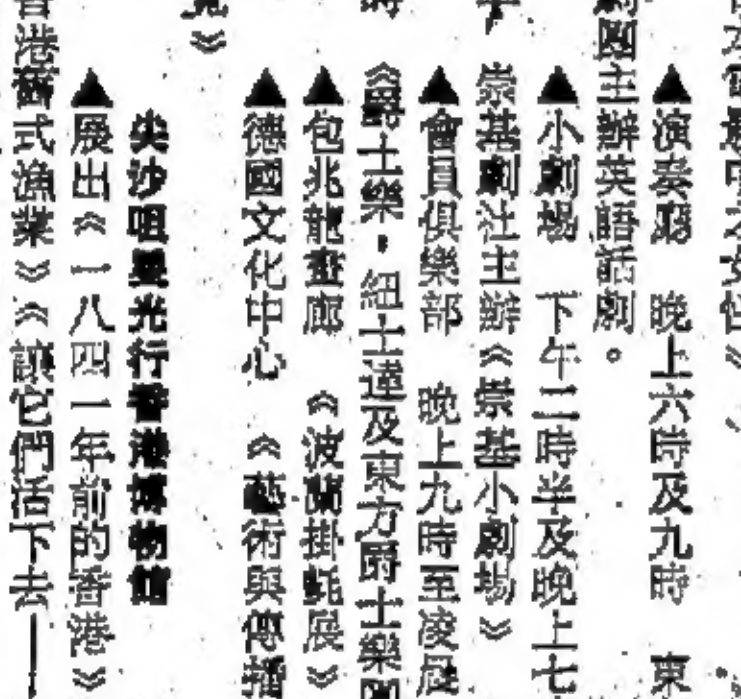 ▲演奏廳　晚上六時及九時　東
劇團主辦英語話劇。
▲小劇場　下午二時半及晚上七
崇基劇社主辦《崇基小劇場》
▲會員俱樂部　晚上九時至凌晨
時　《爵士樂，紐士達及東方爵士樂團
▲包兆龍畫廊　《波蘭掛氈展》
▲德國文化中心　《藝術與傳播
》
尖沙咀星光行香港博物館
▲展出《一八四一年前的香港》
香港舊式漁業》《讓它們活下去—